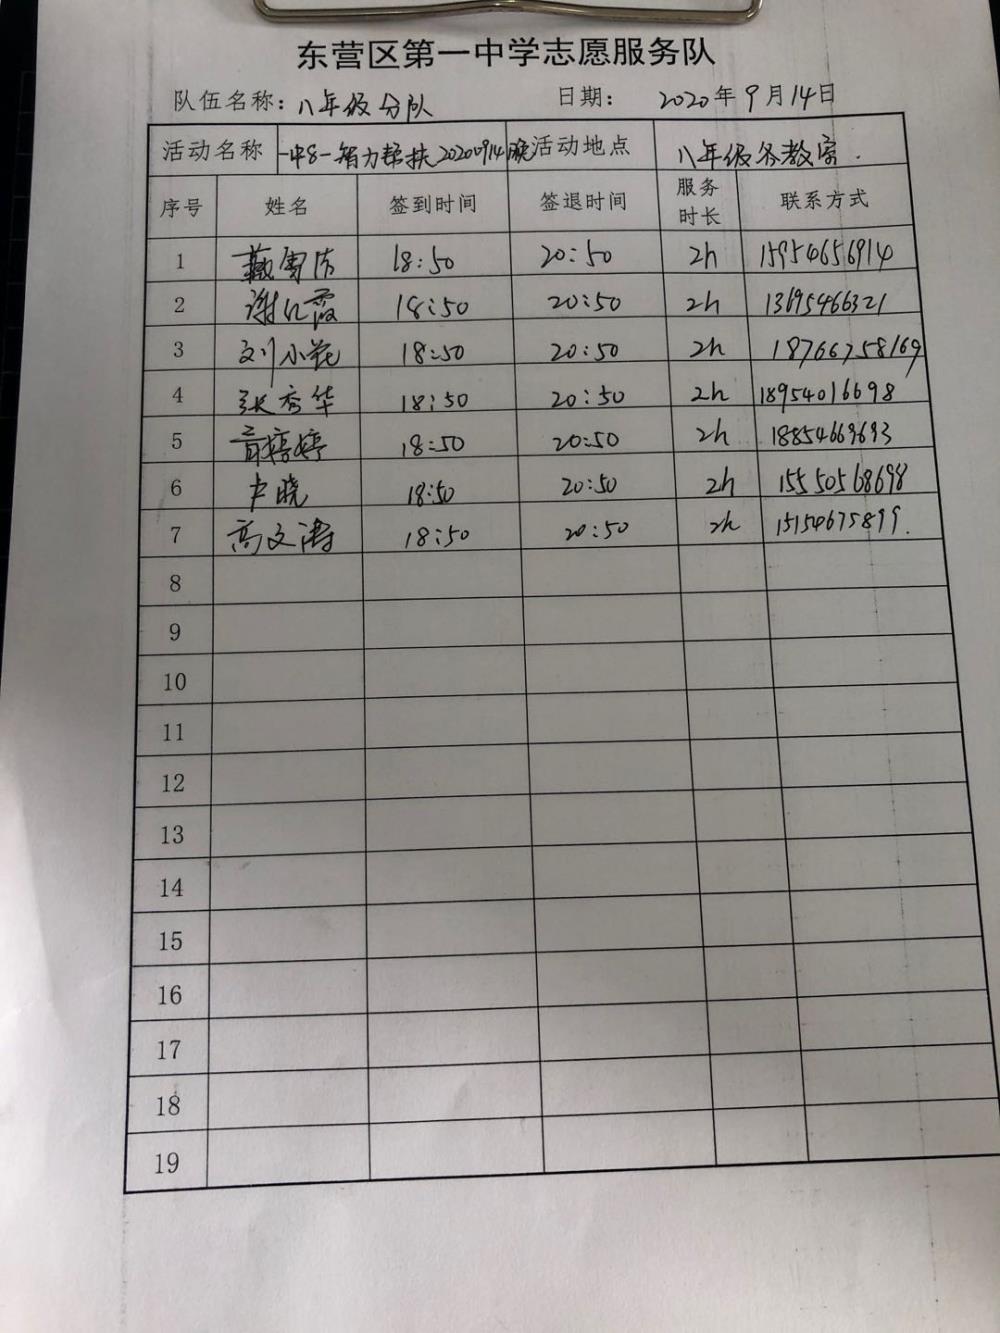 东营区第一中学志愿服务队
队伍名称：八年级分队 日期： 2020年9月14日
活动名称 一中8一智力帮扶20200914晚 活动地点 八年级各教室.
序号 姓名 签到时间 签退时间 服务时长 联系方式
1 18:50 20:50 2h 15954656914
2 谢红霞 18:50 20:50 2h 13695466321
3 刘小花 18:50 20:50 2h 18766758169
4 张秀华 18:50 20:50 2h 18954016698
5 婷婷 18:50 20:50 2h 18854669693
6 卢晓 18:50 20:50 2h 15550568698
7 高文涛 18:50 20:50 2h 15154675899.
8
9
10
11
12
13
14
15
16
17
18
19